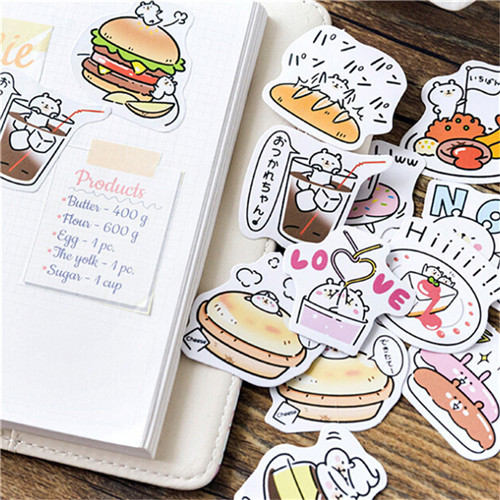 ie
お
Products
*Butter - 400 g
*Flour - 600 g
*Egg - 1 pc.
*The yolk - 1 pc.
*Sugar - 1 cup
パン
パン
パン
パン
いちばん
おつかれちゃん♪
ww
N.O.
Hiiiiii
LOVE
Cheese
Cheese